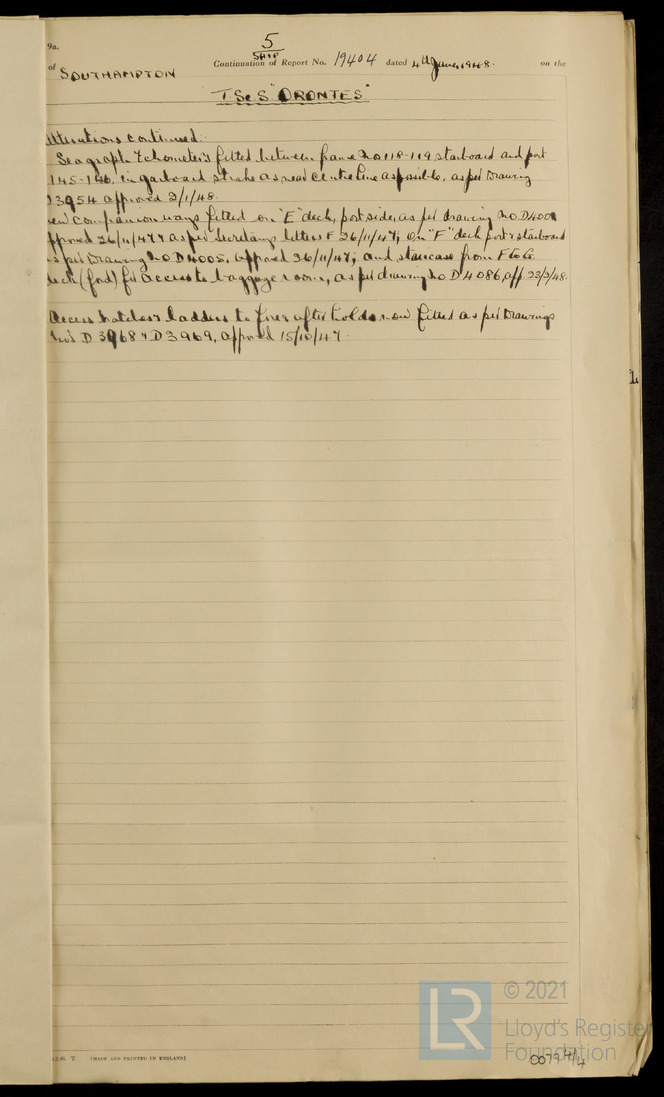 9a.
5
SHIP
of SOUTHAMPTON
Continuation of Report No. 19404 dated 4th June 1948. on the
T.S.S "ORONTES"
Alterations continued:-
Seagraph Echometers fitted between frame No 118-119 starboard and port
145-146, in garboard strake as near centre line as possible, as per Drawing
D3954 approved 2/1/48.
new companion ways fitted on "E" deck, port side, as per drawing No D4001
approved 26/11/47 & as per Secretarys letters F 26/11/47; on "F" deck port & starboard
as per Drawing No D4005, approved 26/11/47; and staircase from F to G.
deck (ford) for access to baggage room, as per drawing No D4086, app. 23/2/48.
Access hatches & ladders to four after holds now fitted as per Drawings
No's D3968 & D3969, approved 15/10/47.
T. [MADE AND PRINTED IN ENGLAND]
LR
© 2021
Lloyd's Register
Foundation
0079 4/4